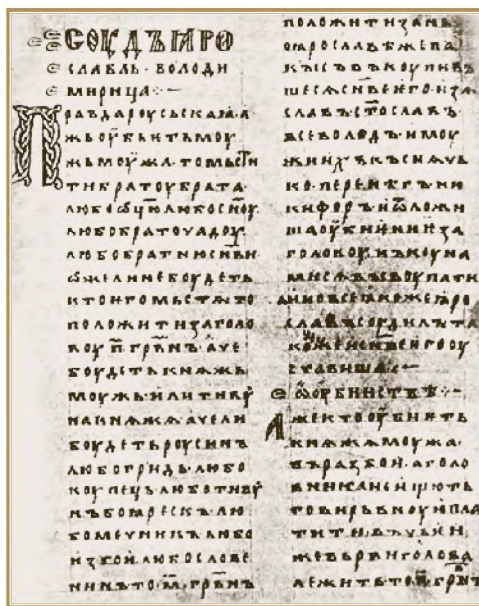 СОУДЪ ꙖРО
СЛАВЛЬ · ВОЛОДИ
МИРИЦА
Правда роусьскаꙗ · а
жь оубьить моу
жь моужа · то мьсти
ти братоу брата ·
любо ѡцю любо сн҃оу
любо братоучадоу
любо братню сн҃ви
ѡже ли не боудеть
кто иго мьстѧ то
положити за голо
воу п҃ грв҃нъ · аче
боудеть кнѧжь
моужь · или тивоу
на кнѧжа · аче ли
боудеть роусинъ
любо гридь · любо
коупець · любо тивоу
нъ боꙗрескъ · любо
мечникъ · любо
изгои · любо слове
нинъ то м҃ · грв҃нъ
положити за нь
ꙗрославѣ же па
кы съвъкоупивъ
шесѧ сн҃ве иго изѧ
славъ ст҃ославъ
всеволодъ и моу
жи ихъ къснѧчь
ко · перенѣгъ · ни
кифоръ и ѿложи
ша оубиение за
головоу · нъ коуна
ми сѧ выкоупати
а ино все ꙗкоже ꙗро
славъ соудилъ та
коже и сн҃ве иго оу
ставиша
ѡ оубииствѣ
Аже кто оубиить
кнѧжа моужа
въ разбои · а голо
вника не ищють
то вирьвноую пла
тити · въ чьеи
же вьрви голова
лежить то п҃ · грв҃нъ